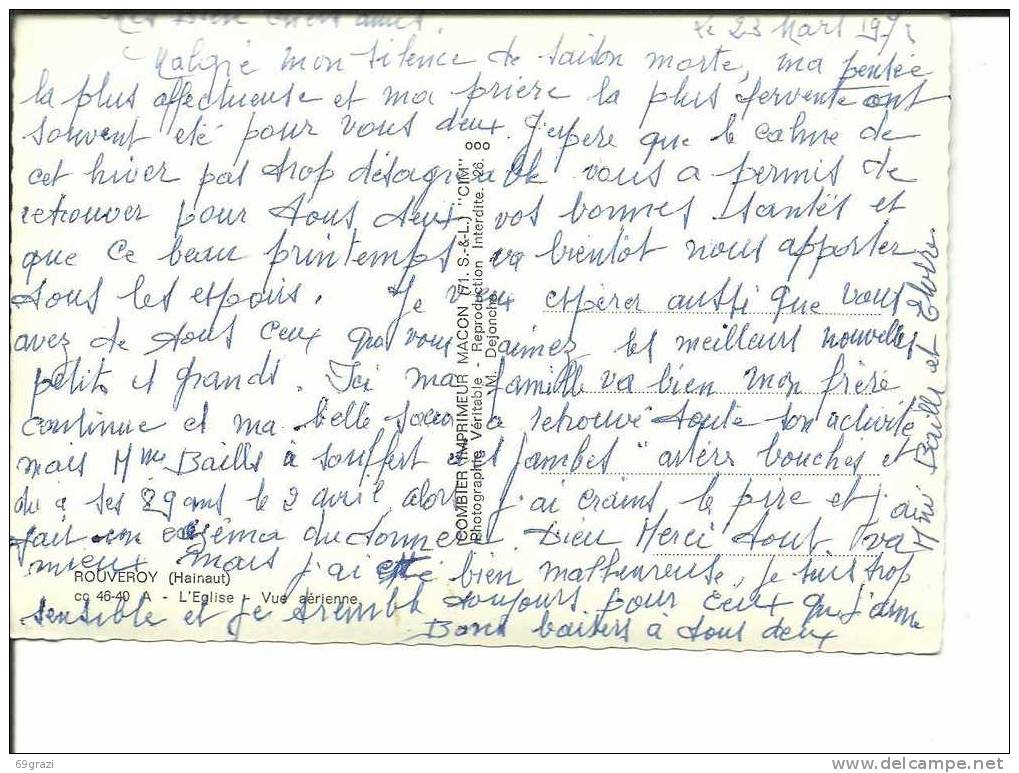 chers amis.
le 23 Mars 197
Malgré mon silence de saison morte, ma pensée
la plus affectueuse et ma prière la plus fervente ont
souvent été pour vous deux. J'espère que le calme de
cet hiver pas trop désagréable vous a permis de
retrouver pour tous deux vos bonnes santés et
que ce beau printemps va bientôt nous apporter
tous les espoirs. Je veux espérer aussi que vous
avez de tous ceux que vous aimez les meilleurs nouvelles
petits et grands. Ici ma famille va bien mon frère
continue et ma belle soeur a retrouvé toute son activité
mais Mme Baills a souffert des jambes "artères bouchées et
du a ses 89 ans le 2 avril, alors j'ai crains le pire et j'ai
fait un eczéma du tonnerre. Dieu Merci tout va
mieux mais j'ai été bien malheureuse, je suis trop
sensible et je tremble toujours pour ceux que j'aime
Bons baisers à tous deux
Mimi Baills et
COMBIER IMPRIMEUR MACON (71. S.-&-L.) "CIM"
Photographie Véritable - Reproduction Interdite.
M. Dejonche
ROUVEROY (Hainaut)
co 46-40 A - L'Eglise - Vue aérienne
69grazi
www.delcampe.net